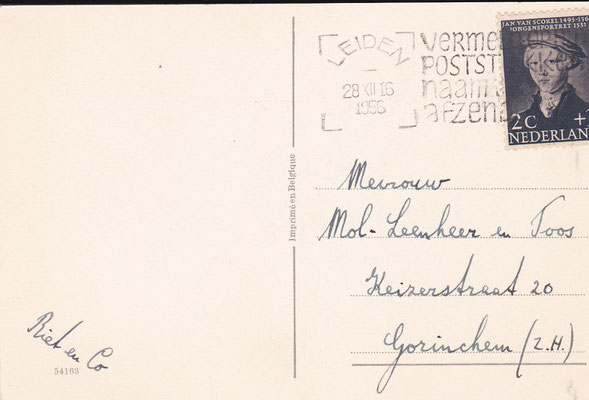 LEIDEN
28 XII 16
1956
POSTST
naam
afzen
JAN VAN SCOREL 1495-156
JONGENSPORTRET 1531
2c +
NEDERLAN
Imprimé en Belgique
Mevrouw
Mol-Leenheer en Toos
Keizerstraat 20
Gorinchem (Z.H.)
Riet en Co
54163